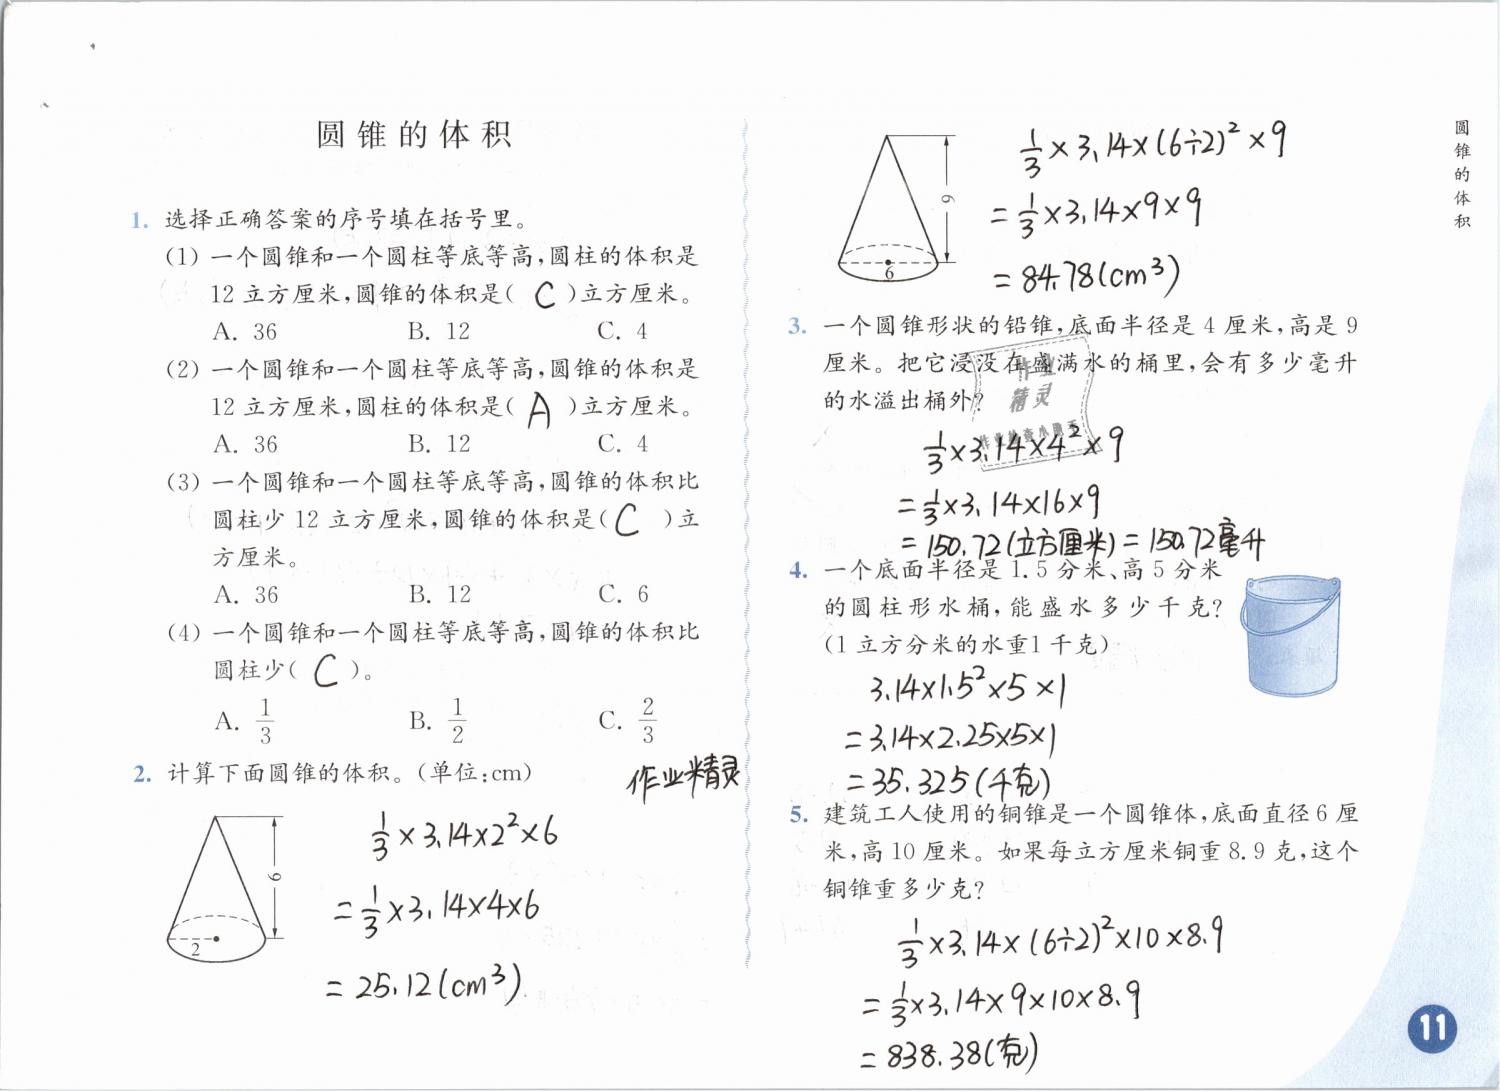 圆锥的体积
1. 选择正确答案的序号填在括号里。
(1) 一个圆锥和一个圆柱等底等高,圆柱的体积是
12 立方厘米,圆锥的体积是( C )立方厘米。
A. 36 B. 12 C. 4
(2) 一个圆锥和一个圆柱等底等高,圆锥的体积是
12 立方厘米,圆柱的体积是( A )立方厘米。
A. 36 B. 12 C. 4
(3) 一个圆锥和一个圆柱等底等高,圆锥的体积比
圆柱少 12 立方厘米,圆锥的体积是( C )立
方厘米。
A. 36 B. 12 C. 6
(4) 一个圆锥和一个圆柱等底等高,圆锥的体积比
圆柱少( C )。
A. 1/3 B. 1/2 C. 2/3
2. 计算下面圆锥的体积。(单位:cm)
作业精灵
6
2
1/3×3.14×2²×6
=1/3×3.14×4×6
=25.12(cm³)
9
6
1/3×3.14×(6÷2)²×9
=1/3×3.14×9×9
=84.78(cm³)
3. 一个圆锥形状的铅锥,底面半径是 4 厘米,高是 9
厘米。把它浸没在盛满水的桶里,会有多少毫升
的水溢出桶外?
作业
精灵
1/3×3.14×4²×9
=1/3×3.14×16×9
=150.72(立方厘米)=150.72毫升
4. 一个底面半径是 1.5 分米、高 5 分米
的圆柱形水桶,能盛水多少千克?
(1 立方分米的水重1 千克)
3.14×1.5²×5×1
=3.14×2.25×5×1
=35.325(千克)
5. 建筑工人使用的铜锥是一个圆锥体,底面直径 6 厘
米,高 10 厘米。如果每立方厘米铜重 8.9 克,这个
铜锥重多少克?
1/3×3.14×(6÷2)²×10×8.9
=1/3×3.14×9×10×8.9
=838.38(克)
圆锥的体积
11